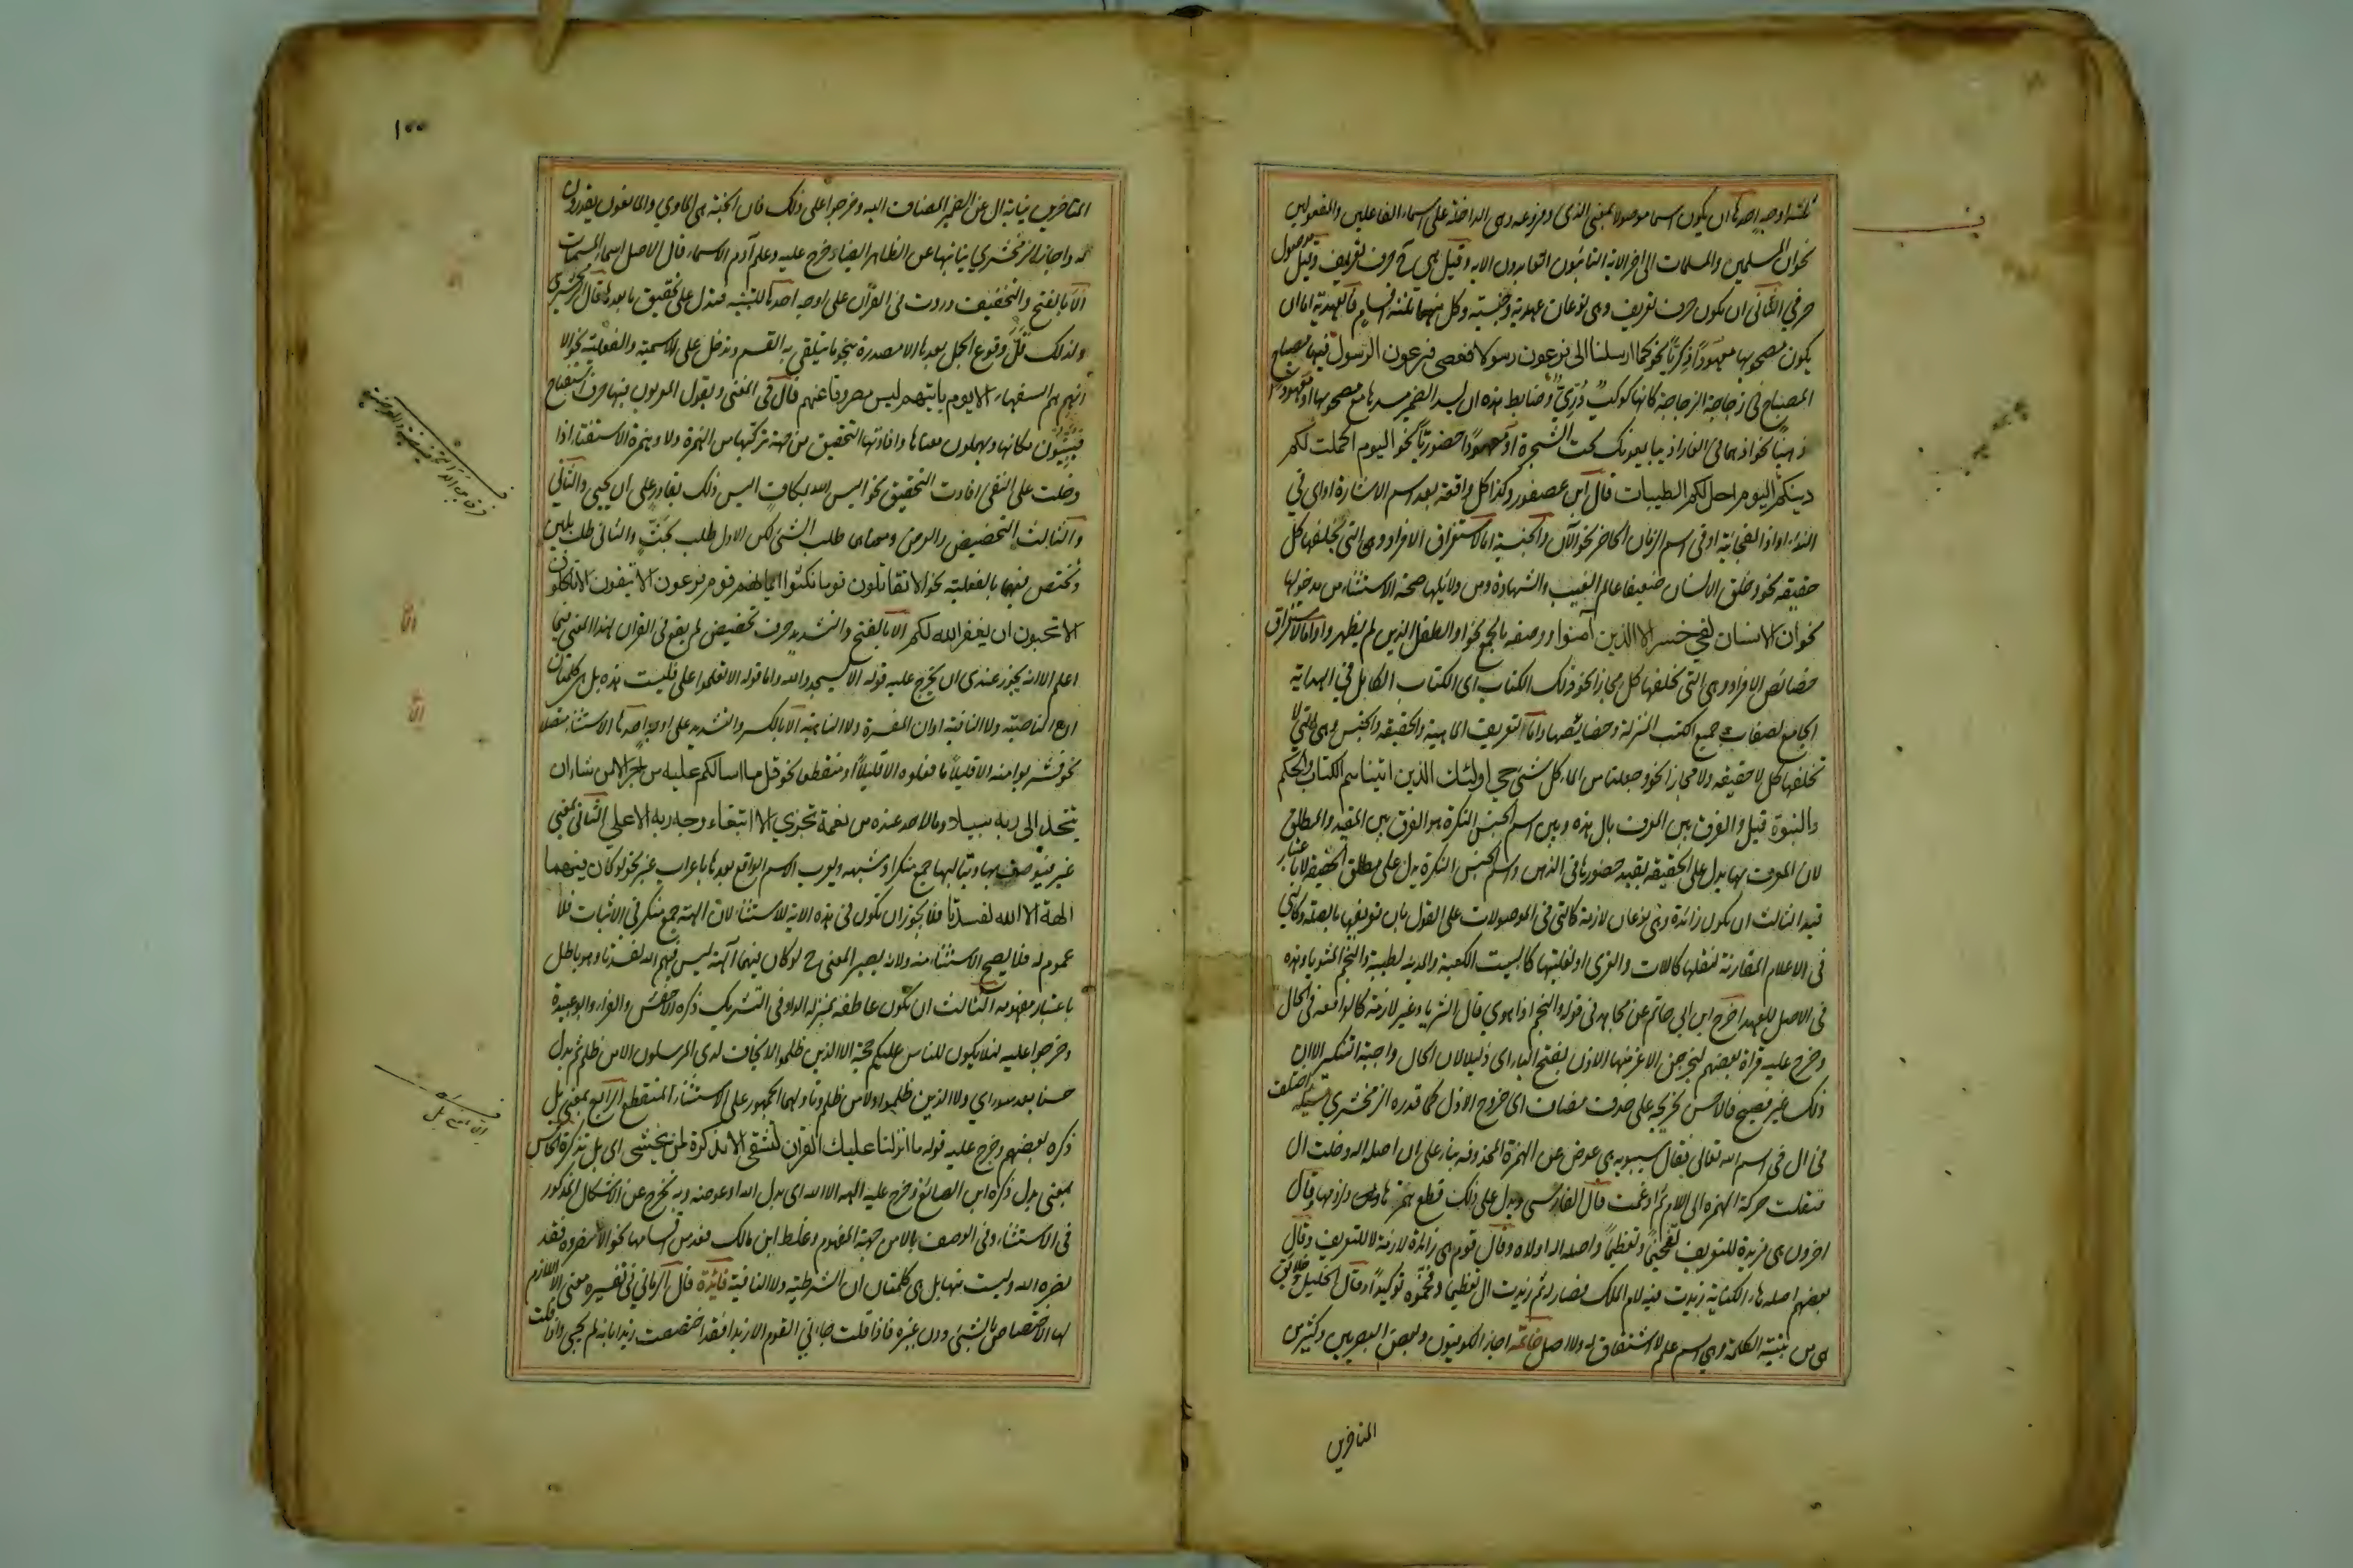 ثلثة اوجه احدها ان يكون اسما موصولا بمعنى الذى وفروعه وهى الداخلة على اسماء الفاعلين والمفعولين
نحو ان المسلمين والمسلمات الى اخر الاية التائبون العابدون الاية وقيل هى ح حرف تعريف وقيل موصول
حرفي الثانى ان يكون حرف تعريف وهى نوعان عهدية وجنسية وكل منهما ثلثة اقسام فالعهدية اما ان
يكون مصحوبها معهودا ذكريا نحو كما ارسلنا الى فرعون رسولا فعصى فرعون الرسول فيها مصباح
المصباح فى زجاجة الزجاجة كانها كوكب درّيّ وضابط هذه ان يسد الضمير مسدها مع مصحوبها او معهودا
ذهنيا نحو اذ هما فى الغار اذ يبايعونك تحت الشجرة او معهودا حضوريا نحو اليوم اكملت لكم
دينكم اليوم احل لكم الطيبات قال ابن عصفور وكذا كل واقعة بعد اسم الاشارة او اى فى
النداء او اذا الفجائية او فى اسم الزمان الحاضر نحو الآن والجنسية اما لاستغراق الافراد وهى التى تخلفها كل
حقيقة نحو وخلق الانسان ضعيفا عالم الغيب والشهادة ومن دلائلها صحة الاستثناء من مدخولها
نحو ان الانسان لفي خسر الا الذين آمنوا ووصفه بالجمع نحو او الطفل الذين لم يظهروا واما لاستغراق
خصائص الافراد وهى التى تخلفها كل مجازا نحو ذلك الكتاب اى الكتاب الكامل في الهداية
الجامع لصفات جميع الكتب المنزلة وخصايصها واما لتعريف الماهية والحقيقة والجنس وهى التى لا
تخلفها كل لا حقيقة ولا مجازا نحو وجعلنا من الماء كل شئ حي اولئك الذين اتيناهم الكتاب والحكم
والنبوة قيل والفرق بين المعرف بال هذه وبين اسم الجنس النكرة هو الفرق بين المقيد والمطلق
لان المعرف بها يدل على الحقيقة بقيد حضورها فى الذهن واسم الجنس النكرة يدل على مطلق الحقيقة لا باعتبار
قيد الثالث ان يكون زائدة وهى نوعان لازمة كالتى فى الموصولات على القول بان تعريفها بالصلة وكالتى
فى الاعلام المقارنة لنقلها كاللات والعزى او لغلبتها كالبيت الكعبة والمدينة لطيبة والنجم للثريا وهذه
فى الاصل للعهد اخرج ابن ابي حاتم عن مجاهد فى قوله والنجم اذا هوي قال الثريا وغير لازمة كالواقعة فى الحال
وخرج عليه قراة بعضهم ليخرجن الاعز منها الاذل بفتح الياء اى ذليلا لان الحال واجبة التنكير الا ان
ذلك غير فصيح فالاحسن تخريجه على حذف مضاف اى خروج الاذل كما قدره الزمخشري مسئلة اختلف
فى ال فى اسم الله تعالى فقال سيبويه هى عوض عن الهمزة المحذوفه بناء على ان اصله اله دخلت ال
فنقلت حركة الهمزة الى اللام ثم ادغمت قال الفارسى ويدل على ذلك قطع همزها ولزومها وقال
اخرون هى مزيدة للتعريف تفخيما وتعظيما واصله اله اولاه وقال قوم هى زائدة لازمة لا للتعريف وقال
بعضهم اصله هاء الكناية زيدت فيه لام الملك فصار له ثم زيدت ال تعظيما وفخموه توكيدا وقال الخليل وخلايق
هى من بنية الكلمة وهى اسم علم لا اشتقاق له ولا اصل خاتمة اجاز الكوفيون وبعض البصريين وكثير من
المتاخرين
١٠٠
المتاخرين نيابة ال عن الضمير المضاف اليه وخرجوا على ذلك فان الجنة هى الماوي والمانعون يقدرون
له واجاز الزمخشري نيابتها عن الظاهر ايضا وخرج عليه وعلم آدم الاسماء قال الاصل اسماء المسميات
الا بالفتح والتخفيف وردت فى القرآن على اوجه احدها للتنبيه فتدل على تحقيق ما بعدها قال الزمخشري
ولذلك قلّ وقوع الجمل بعدها الا مصدرة بنحو ما يتلقى به القسم وتدخل على الاسمية والفعلية نحو الا
انهم هم السفهاء الا يوم ياتيهم ليس مصروفا عنهم قال فى المغنى ويقول المعربون فيها حرف استفتاح
فيبيّنون مكانها ويهملون معناها وافادتها التحقيق من جهة تركيبها من الهمزة ولا وهمزة الاستفهام اذا
دخلت على النفى افادت التحقيق نحو اليس الله بكاف اليس ذلك بقادر على ان يحيي والثاني
والثالث التحضيض والعرض ومعناهما طلب الشئ لكن الاول طلب بحثّ والثانى طلب بلين
وتختص فيهما بالفعلية نحو الا تقاتلون قوما نكثوا ايمانهم قوم فرعون الا يتقون الا تاكلون
الا تحبون ان يغفر الله لكم الا بالفتح والتشديد حرف تحضيض لم يقع فى القران لهذا المعنى فيما
اعلم الا انه يجوز عندى ان يخرج عليه قوله الا يسجدوا لله واما قوله الا تعلوا على فليست هذه بل هى كلمتان
ان الناصبة ولا النافية او ان المفسرة ولا الناهية الا بالكسر والتشديد على اوجه احدها الاستثناء متصلا
نحو فشربوا منه الا قليلا ما فعلوه الا قليلا او منقطعا نحو قل ما اسالكم عليه من اجر الا من شاء ان
يتخذ الى ربه سبيلا وما لاحد عنده من نعمة تجزى الا ابتغاء وجه ربه الاعلى الثانى بمعنى
غير فيوصف بها وبتاليها جمع منكر او شبهه ويعرب الاسم الواقع بعدها باعراب غير نحو لو كان فيهما
الهة الا الله لفسدتا فلا يجوز ان تكون فى هذه الاية للاستثناء لان الهة جمع منكر فى الاثبات فلا
عموم له فلا يصح الاستثناء منه ولانه يصير المعنى ح لو كان فيهما آلهة ليس فيهم الله لفسدتا وهو باطل
باعتبار مفهومه الثالث ان تكون عاطفة بمنزلة الواو فى التشريك ذكره الاخفش والفراء وابو عبيدة
وخرجوا عليه لئلا يكون للناس عليكم حجة الا الذين ظلموا لا يخاف لدى المرسلون الا من ظلم ثم بدل
حسنا بعد سوء اي ولا الذين ظلموا ولا من ظلم وتاولهما الجمهور على الاستثناء المنقطع الرابع بمعنى بل
ذكره بعضهم وخرج عليه قوله ما انزلنا عليك القرآن لتشقى الا تذكرة لمن يخشى اى بل تذكرة الخامس
بمعنى بدل ذكره ابن الصائغ وخرج عليه الهة الا الله اى بدل الله او عوضه وبه يخرج عن الاشكال المذكور
فى الاستثناء وفى الوصف بالا من جهة المفهوم وغلط ابن مالك فعد من اقسامها نحو الا تنصروه فقد
نصره الله وليست منها بل هى كلمتان ان الشرطية ولا النافية فائدة قال الرمانى فى تفسيره معنى الا اللازم
لها الاختصاص بالشئ دون غيره فاذا قلت جاءني القوم الا زيدا فقد اختصصت زيدا بانه لم يجى واذا قلت
الا
الا
الا